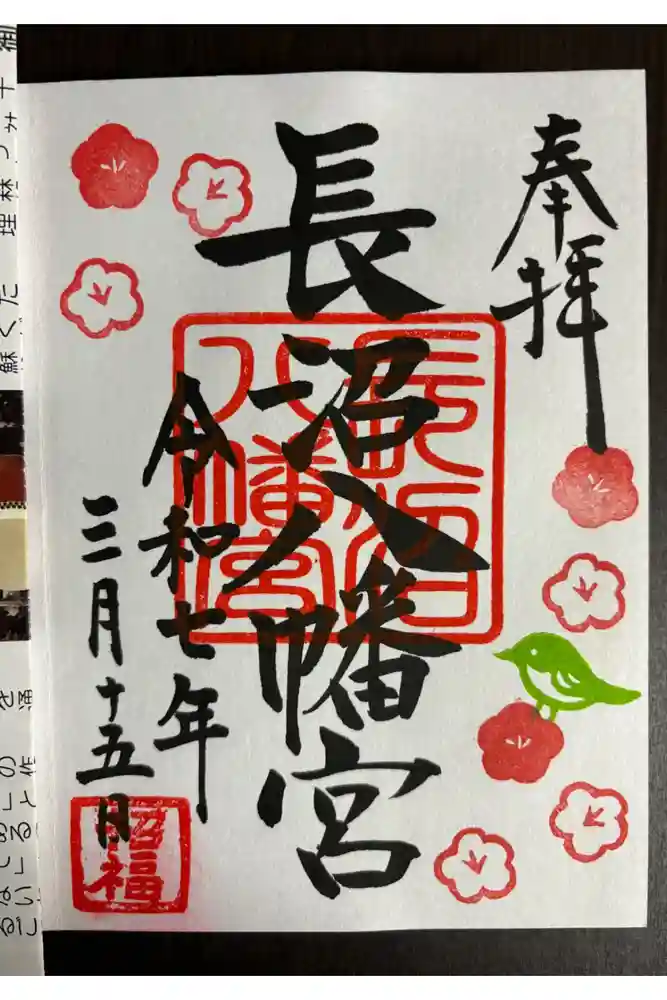 奉拝
長沼八幡宮
長沼
八幡宮
令和七年
三月十五日
招福